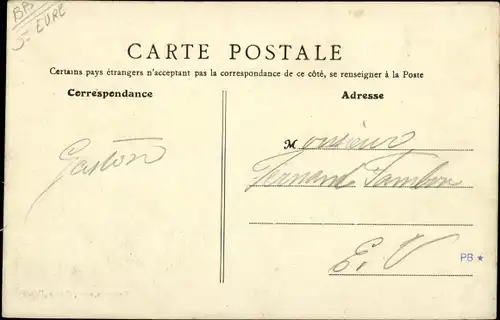 BB
EURE
CARTE POSTALE
Certains pays étrangers n'acceptant pas la correspondance de ce côté, se renseigner à la Poste
Correspondance
Adresse
Monsieur
Gaston
Fernand
E. V
PB ★